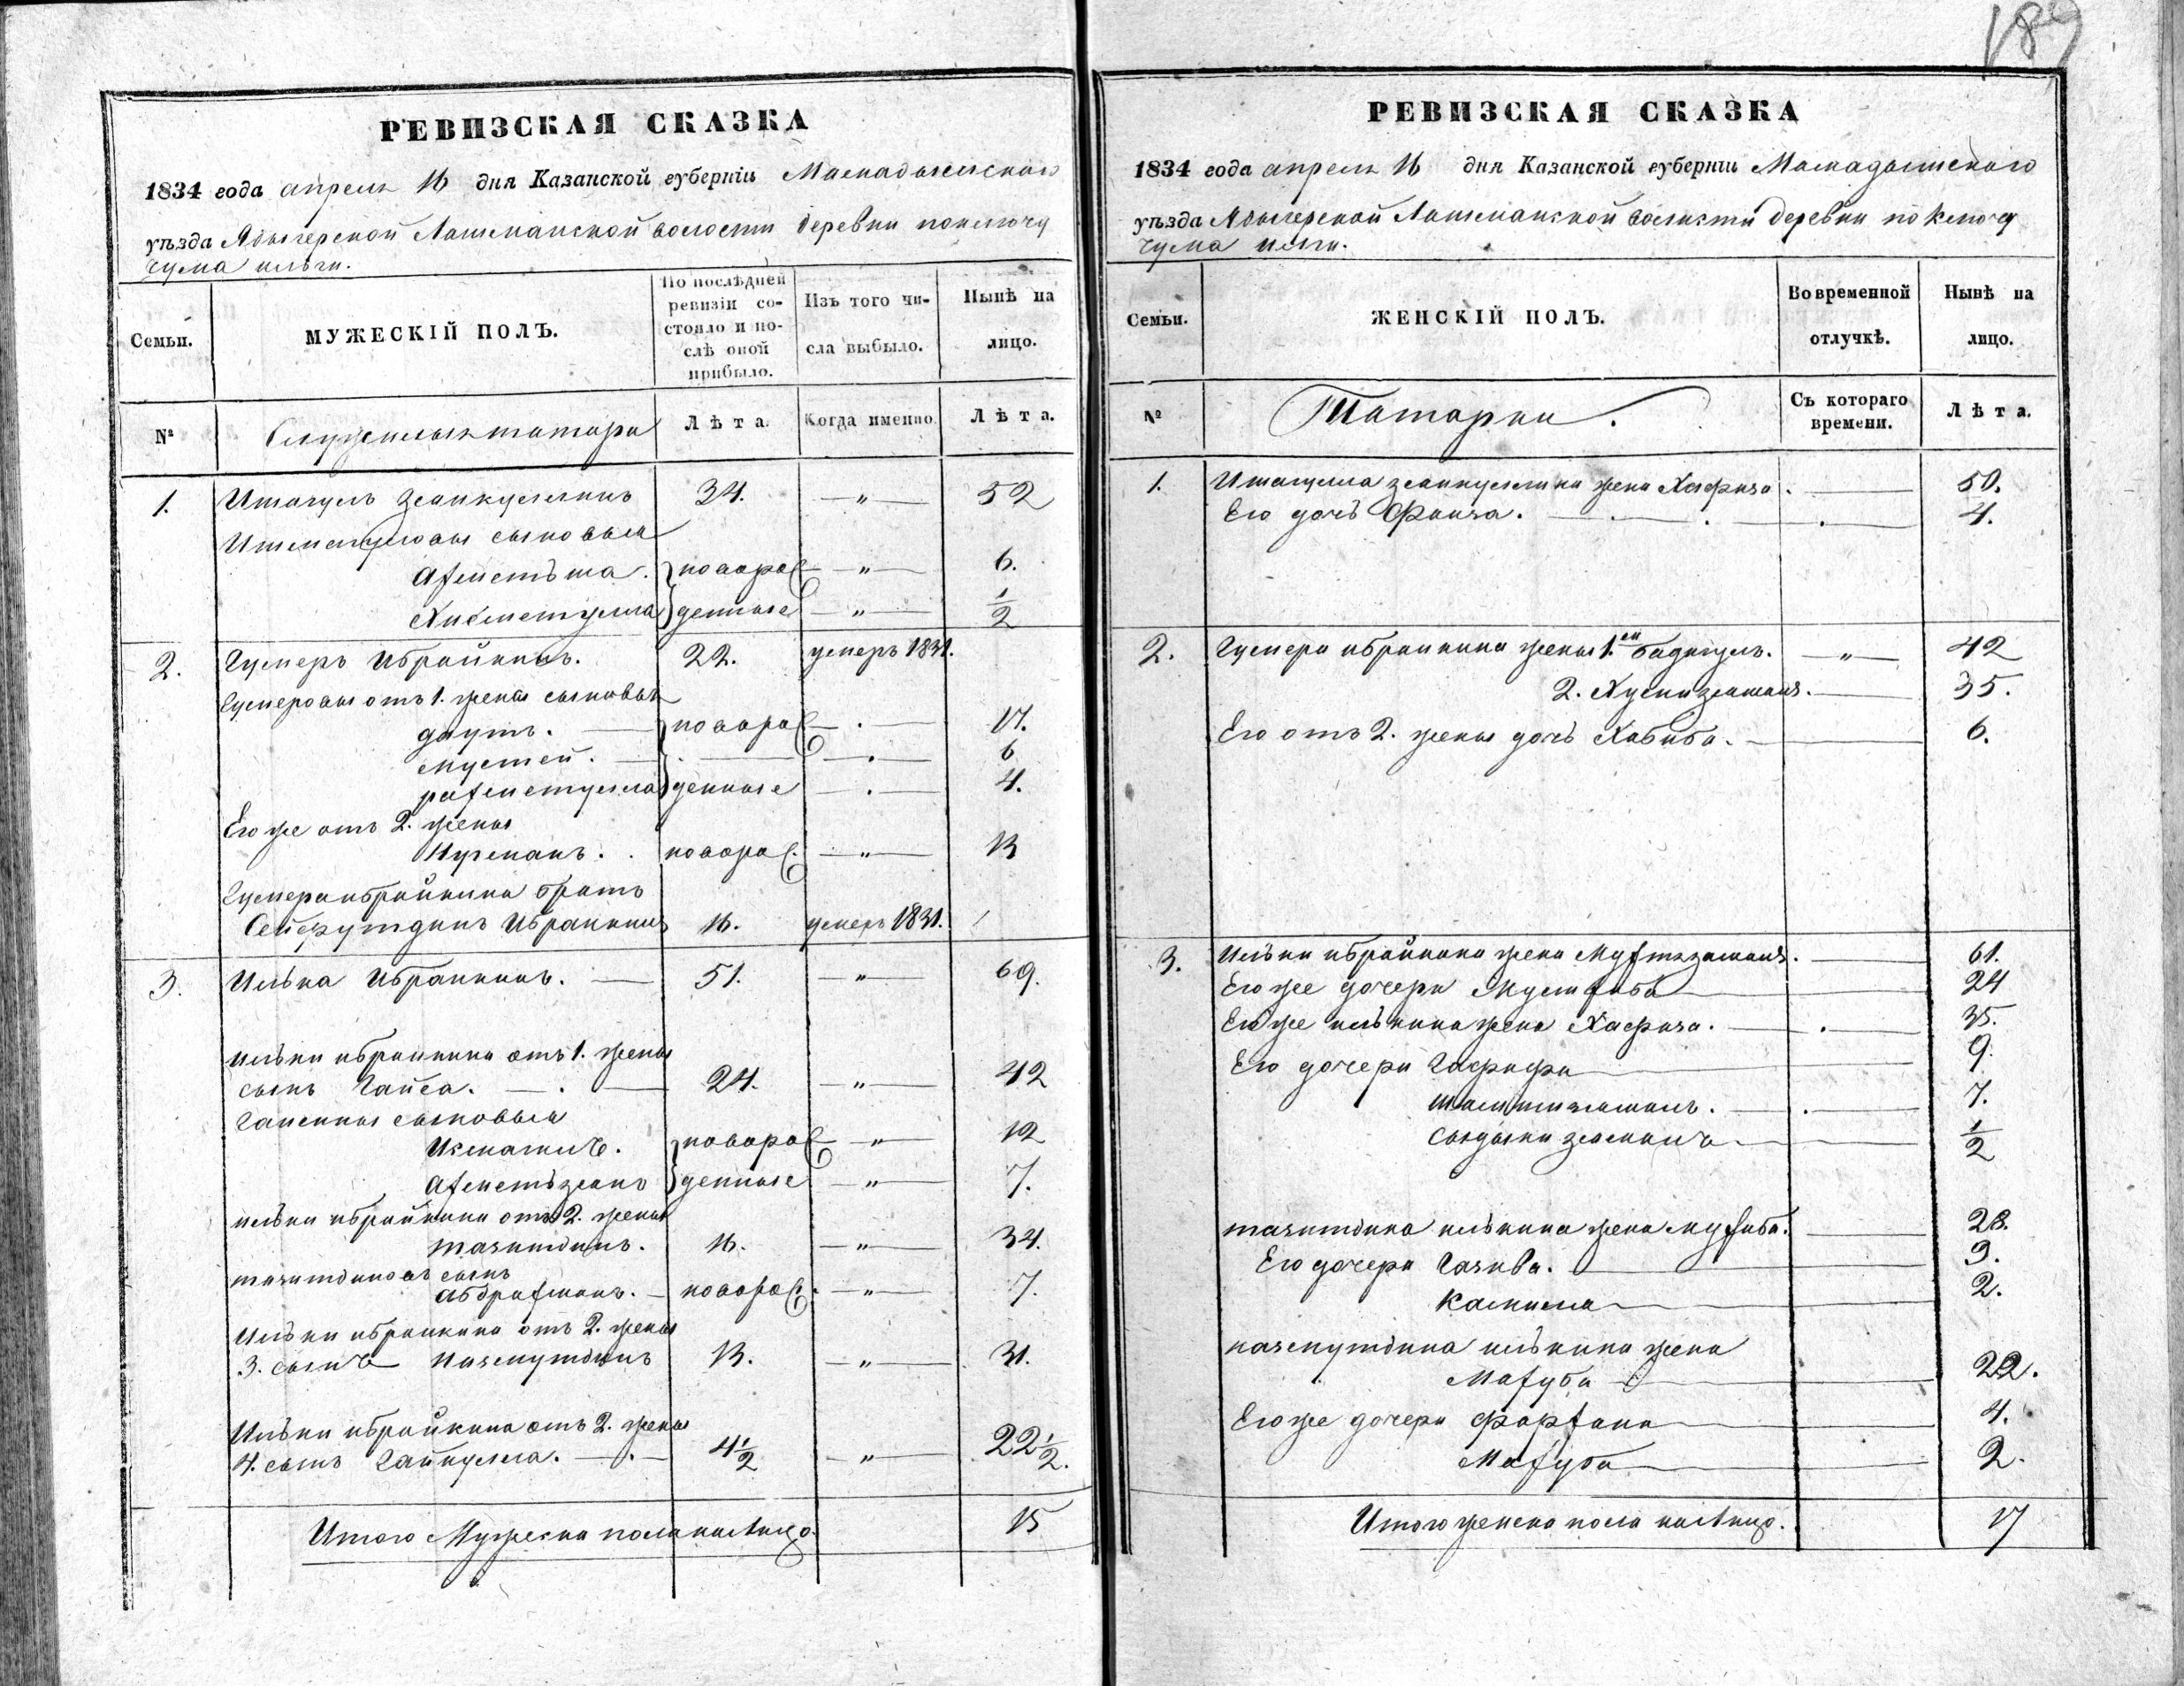 189
РЕВИЗСКАЯ СКАЗКА
1834 года апреля 16 дня Казанской губерніи Мамадышскаго
уѣзда Лашманской волости деревни по ключу
чума
Семьи.
МУЖЕСКІЙ ПОЛЪ.
По послѣдней ревизіи состояло и послѣ оной прибыло.
Изъ того числа выбыло.
Нынѣ на лицо.
№
Служилыя татара
Лѣта.
Когда именно.
Лѣта.
1. Ишагулъ 34. — " — 52
сыновья
Ахметьша. новорож — " — 6.
Хикметулла денные — " — 1/2
2. Гумеръ Ибрайкинъ. 22. умеръ 1831.
Гумеровы отъ 1. жены сыновья
Даутъ. новорож — . — 17.
Мустей. — . — 6
рахметулла денные — . — 4.
Его же отъ 2. жены
Нугманъ. новорож. — " — 13
Гумера ибрайкина братъ
Сейфутдинъ Ибрайкинъ 16. умеръ 1831.
3. Илька Ибрайкинъ. 51. — " — 69.
Ильки ибрайкина отъ 1. жены
сынъ Гайса. 24. — " — 42
Гайсины сыновья
новорож — " — 12
Ахметьзянъ денные — " — 7.
Ильки ибрайкина отъ 2. жены
тазитдинъ. 16. — " — 34.
тазитдиновъ сынъ
Абдрахманъ. новорож. — " — 7.
Ильки ибрайкина отъ 2. жены
3. сынъ Назмутдинъ 13. — " — 31.
Ильки ибрайкина отъ 2. жены
4. сынъ Гайнулла. 4 1/2 — " — 22 1/2.
Итого Мужеска пола на Лицо. 15
РЕВИЗСКАЯ СКАЗКА
1834 года апреля 16 дня Казанской губерніи Мамадышскаго
уѣзда Лашманской волости деревни по ключу
чума
Семьи.
ЖЕНСКІЙ ПОЛЪ.
Во временной отлучкѣ.
Нынѣ на лицо.
№
Татарки.
Съ котораго времени.
Лѣта.
1. жена Хафиза. 50.
Его дочь Фаиза. 4.
2. Гумера ибрайкина жены 1.ая Бадигулъ. — " — 42
2. 35.
Его отъ 2. жены дочь Хабиба. 6.
3. Ильки ибрайкина жена 61.
Его же дочери 24
Его же илькина жена Хафиза. 35.
Его дочери Гафифа 9.
7.
1/2
тазитдина илькина жена Мухиба. 28.
Его дочери Газиза. 9.
Камила 2.
назмутдина илькина жена
Махуба 22.
Его же дочери Фархана 4.
Махуба 2.
Итого женска пола на Лицо. 17